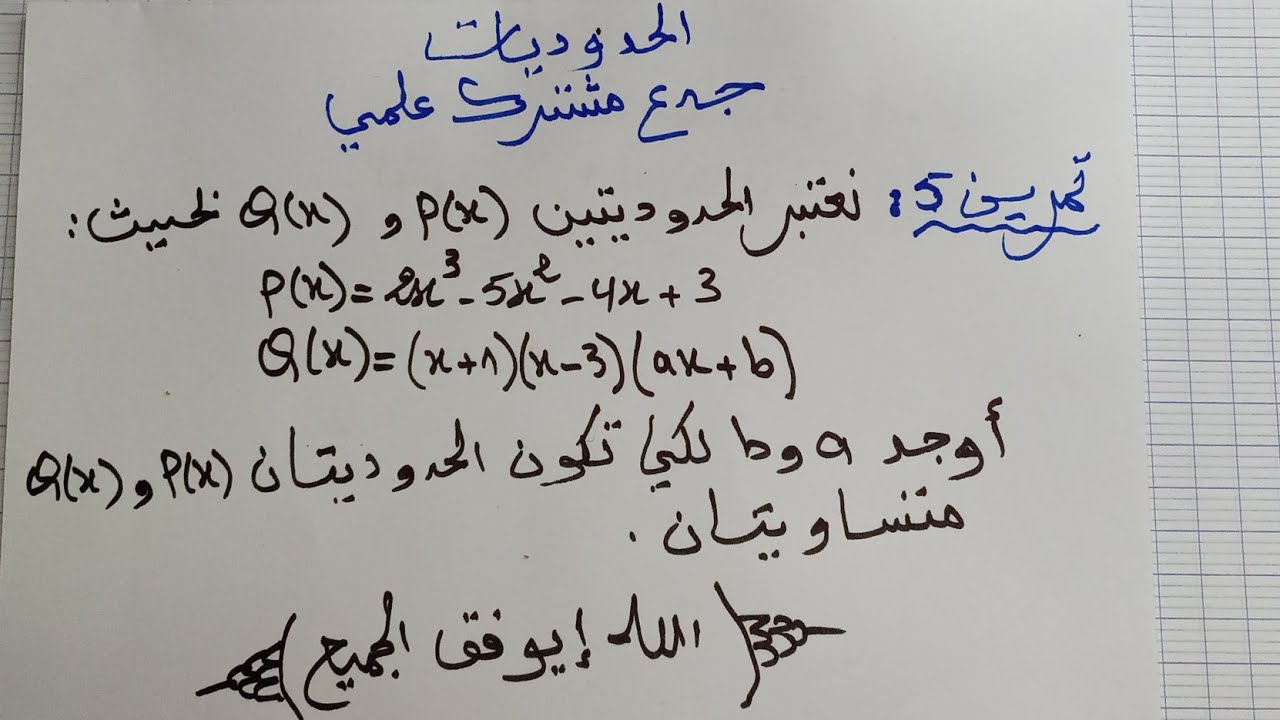 الحدوديات
جدع مشترك علمي
تمرين 5: نعتبر الحدوديتين P(x) و Q(x) بحيث:
P(x)= 2x³ - 5x² - 4x + 3
Q(x)= (x+1)(x-3)(ax+b)
أوجد a و b لكي تكون الحدوديتان P(x) و Q(x)
متساويتان.
(الله إيوفق الجميع)